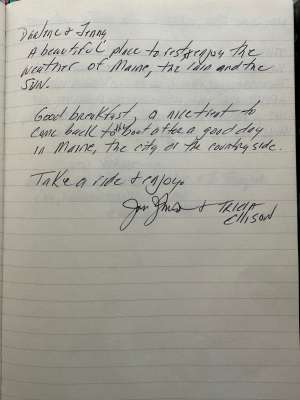 Darlene & Jenny
A beautiful place to rest & enjoy the
weather of Maine, the rain and the
SUN.
Good breakfast, a nice treat to
come back to the boat after a good day
in Maine, the city or the country side.
Take a ride & enjoy.
& TRICIA
ELLISON